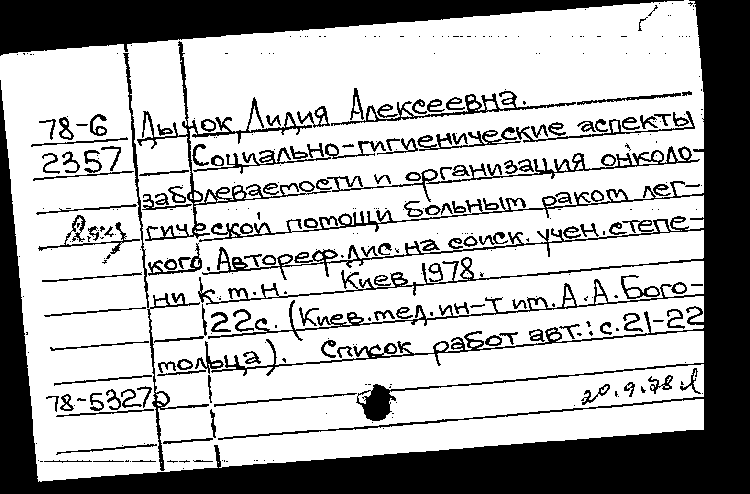 78-6 Дычок, Лидия Алексеевна.
2357 Социально-гигиенические аспекты
заболеваемости и организация онколо-
2 экз гической помощи больным раком лег-
кого. Автореф. дис. на соиск. учен. степе-
ни к.м.н. Киев, 1978.
22с. (Киев. мед. ин-т им. А.А. Бого-
мольца). Список работ авт.: с. 21-22
78-5327
20.9.78